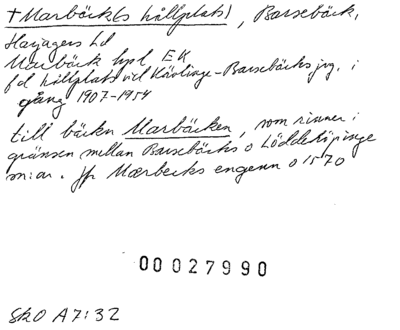 +Marbäck(s hållplats), Barsebäck,
Harjagers hd
Marbäck hpl, EK
fd hållplats vid Kävlinge-Barsebäcks jvg, i
gång 1907-1954
till bäckn Marbäcken, som rinner i
gränsen mellan Barsebäcks o Löddeköpinge
sn:ar. Jfr Marbecks engenn o 1570
00027990
Sk0 A7:32